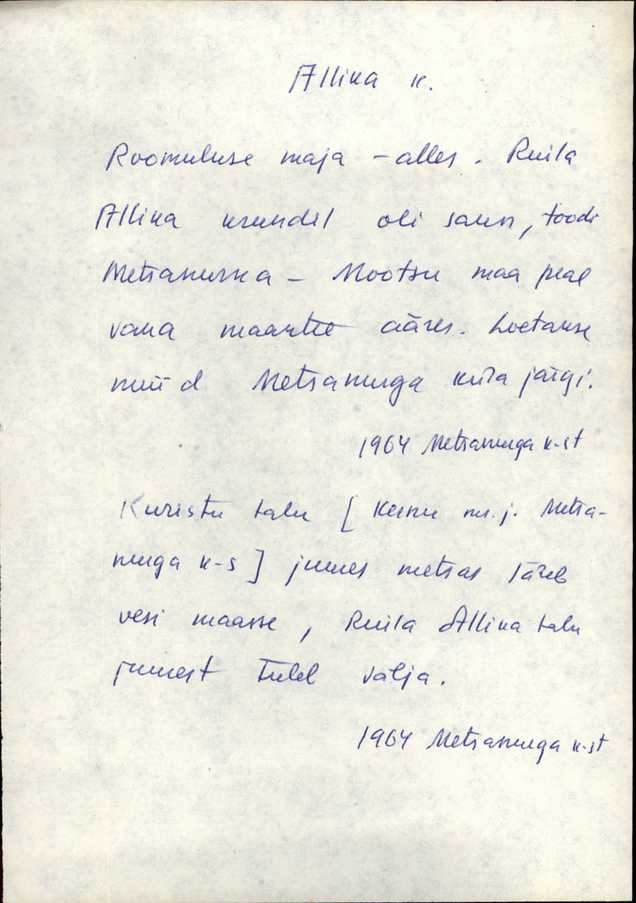 Allika k.
Roomuluse maja - alles. Ruila
Allika krundil oli saun, toodi
Metsanurka - Mootsu maa peal
vana maantee ääres. Loetakse
nüüd Metsanurga küla järgi.
1964 Metsanurga k-st
Kuristu talu [Kernu ms. j. Metsa-
nurga k-s] juures metsas läheb
vesi maasse, Ruila Allika talu
juurest tuleb välja.
1964 Metsanurga k-st